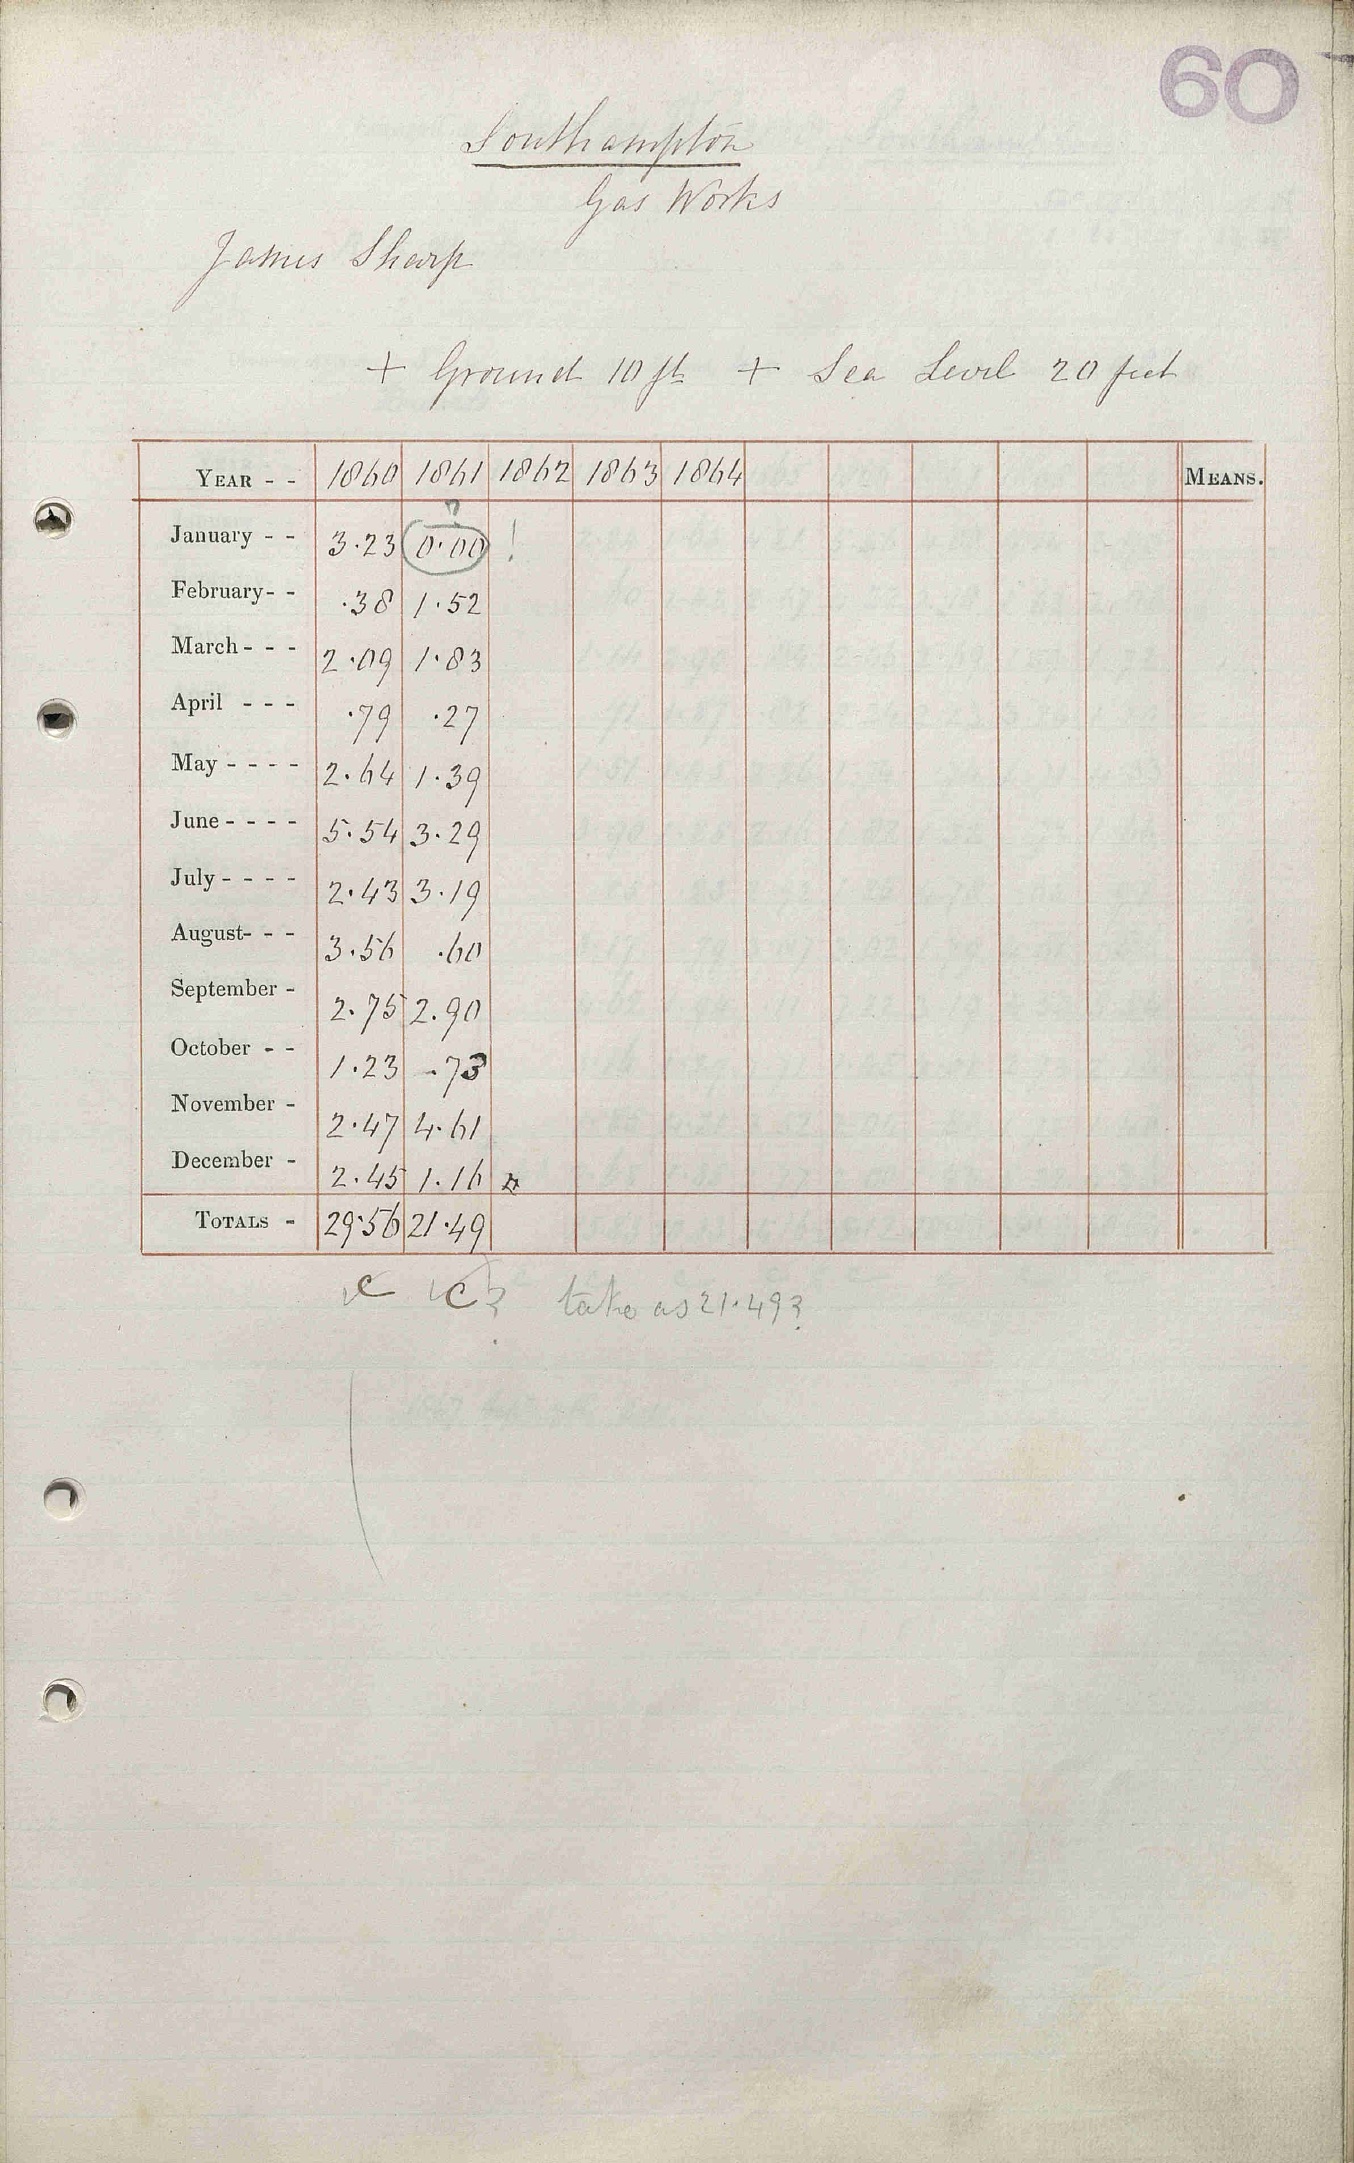 60
Southampton
Gas Works
James Sharp
+ Ground 10 ft + Sea Level 20 feet
YEAR - - 1860 1861 1862 1863 1864 MEANS.
?
January - - 3.23 0.00 !
February - - .38 1.52
March - - - 2.09 1.83
April - - - .79 .27
May - - - - 2.64 1.39
June - - - - 5.54 3.29
July - - - - 2.43 3.19
August - - - 3.56 .60
September - 2.75 2.90
October - - 1.23 .73
November - 2.47 4.61
December - 2.45 1.16
TOTALS - 29.56 21.49
c c ? take as 21.49?